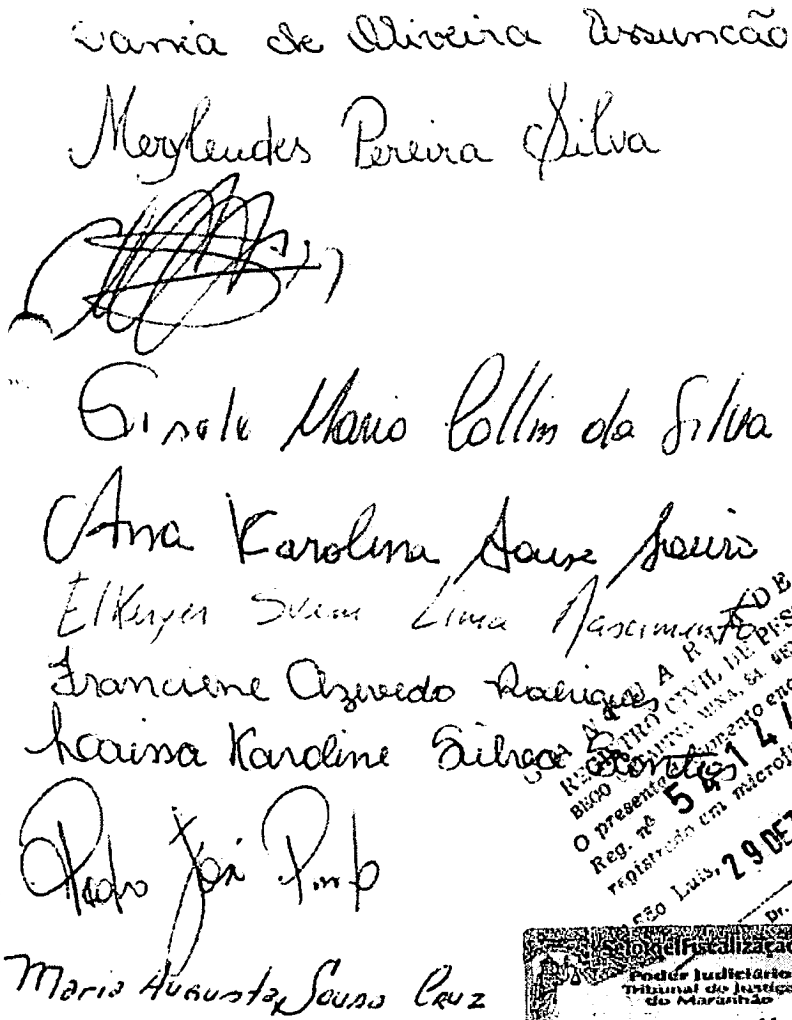 Vania de Oliveira Assuncão
Meryleudes Pereira Silva
Gisele Maria Collins da Silva
Ana Karolina
Lima Nascimento
Franciene Azevedo Rodrigues
Karoline Silva Santos
Pedro José Pinto
Maria Augusta Sousa Cruz
REGISTRO CIVIL DE PES
O presente
Reg. nº 54147
registrado em microfi
São Luis, 29 DEZ
Dr.
Selo de Fiscalização
Poder Judiciário
Tribunal de Justiça
do Maranhão